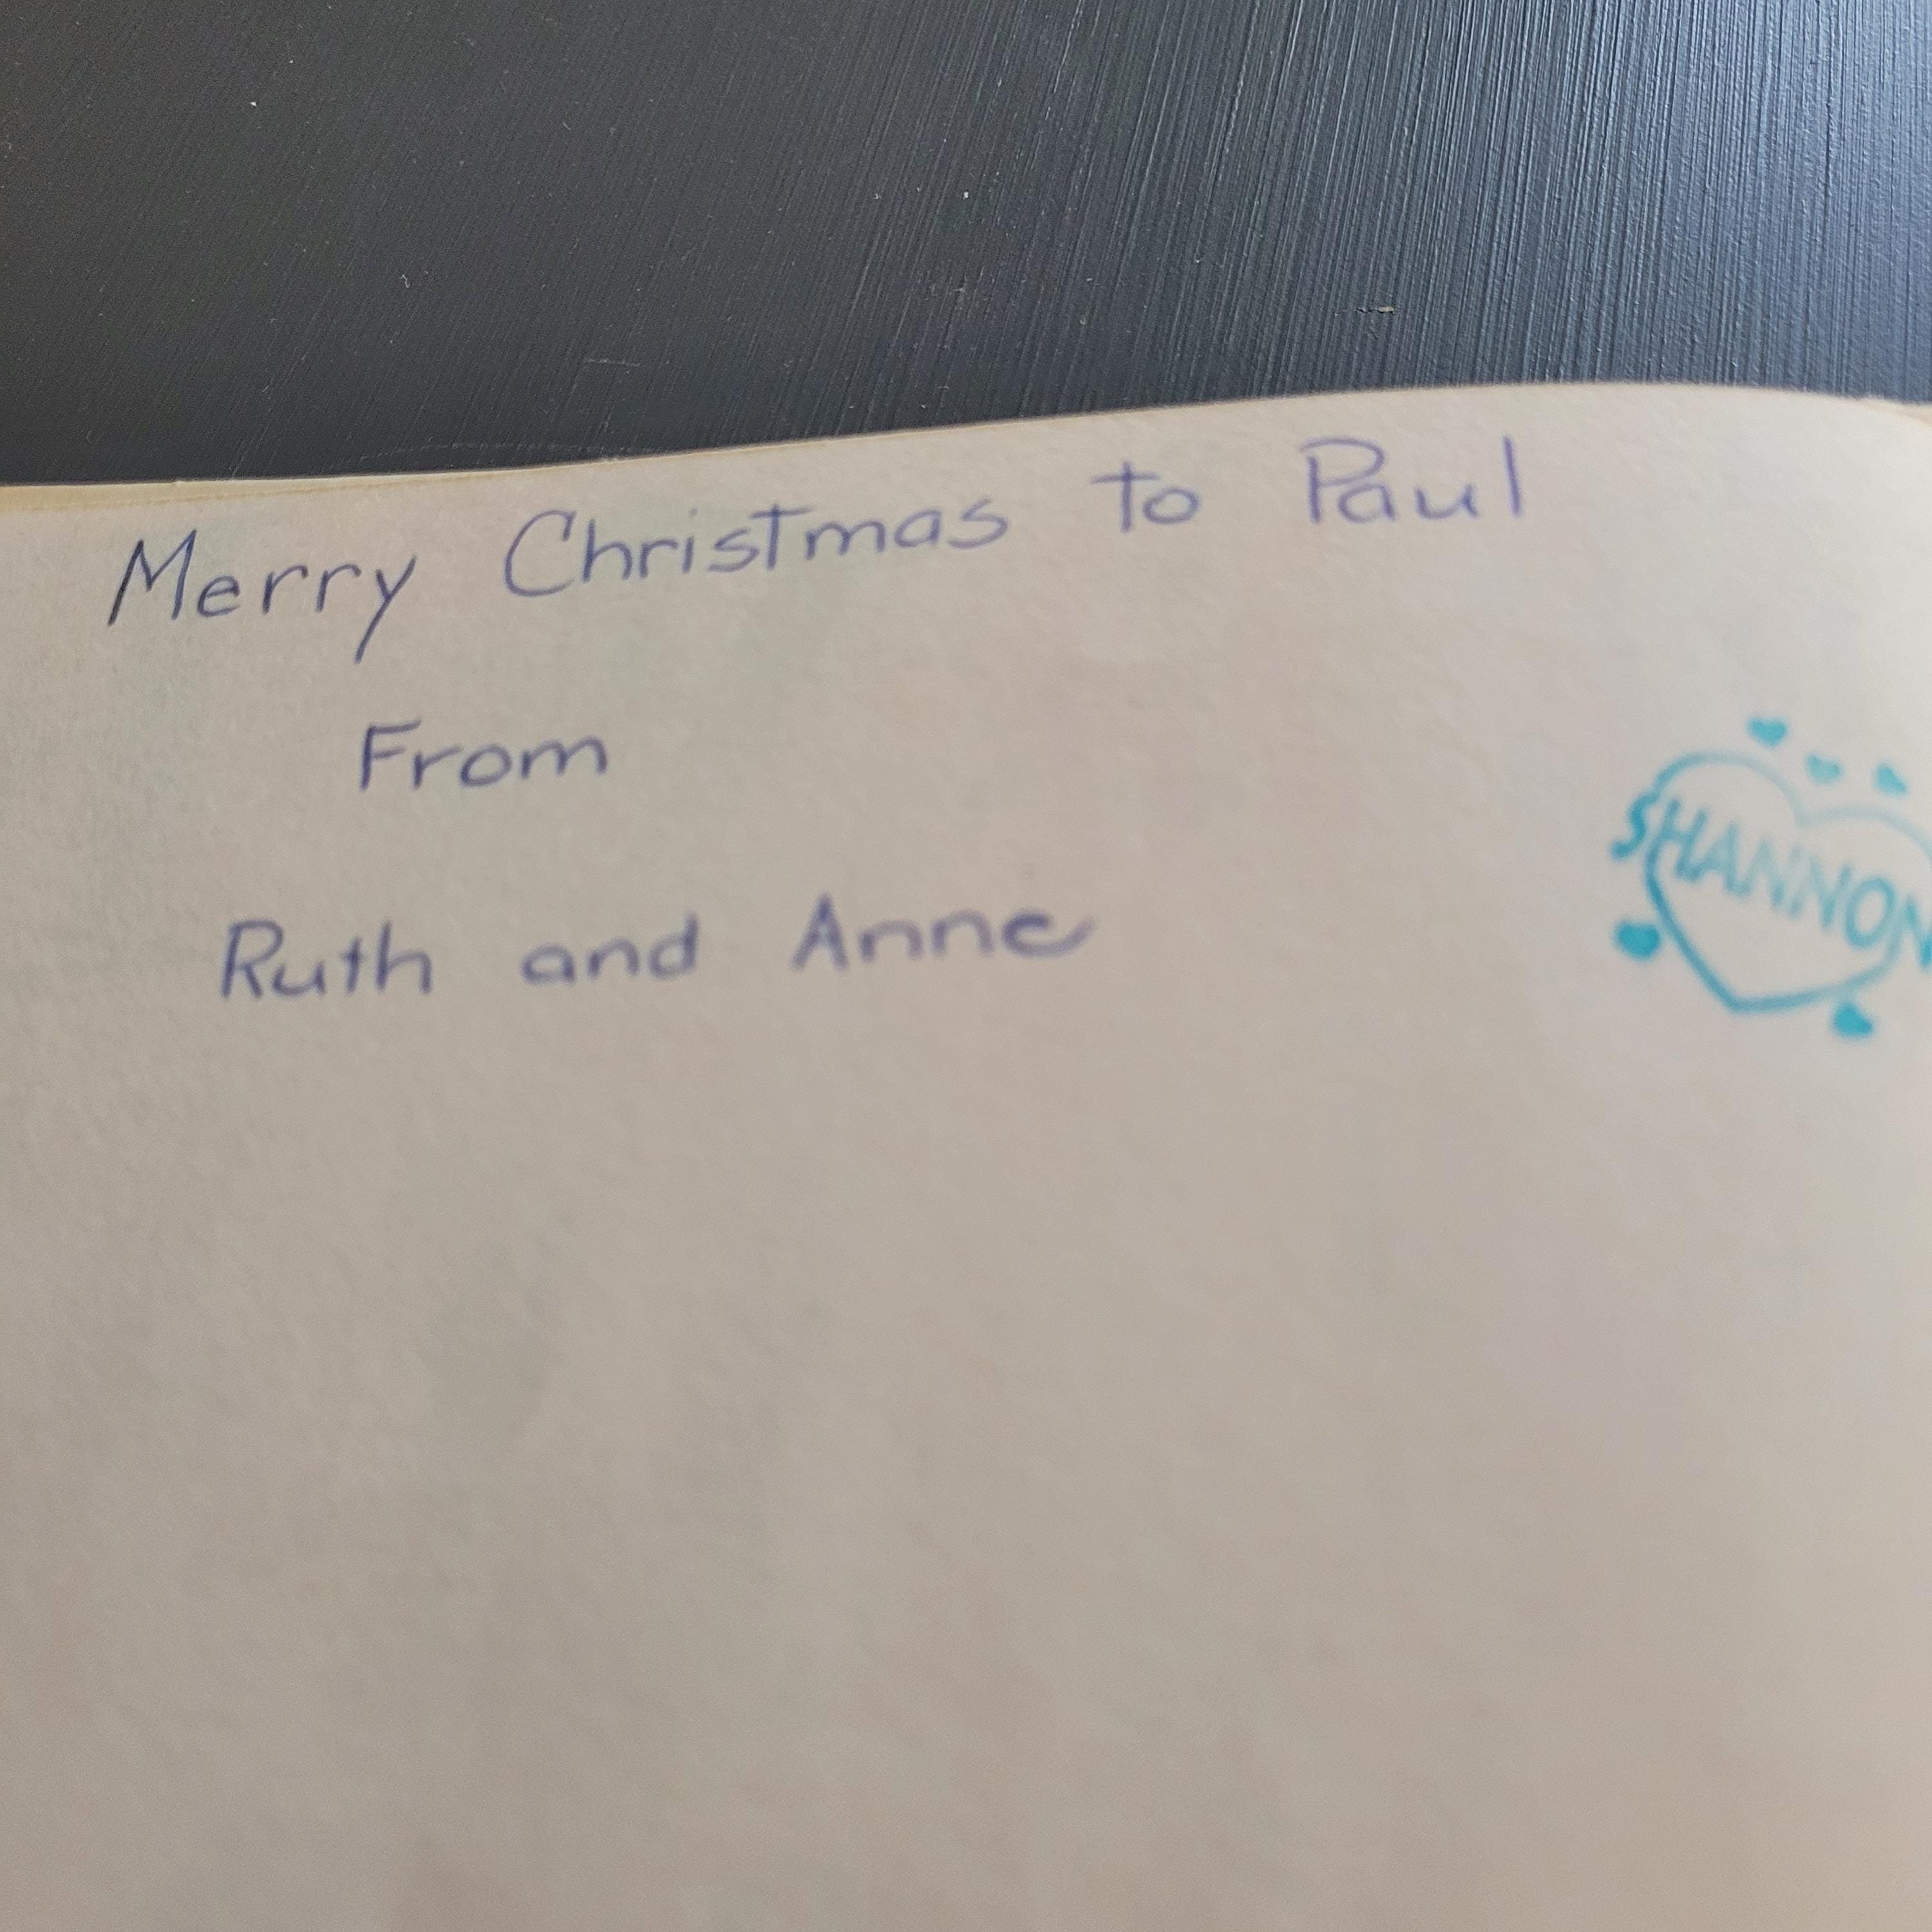 Merry Christmas to Paul
From
Ruth and Anne
SHANNON